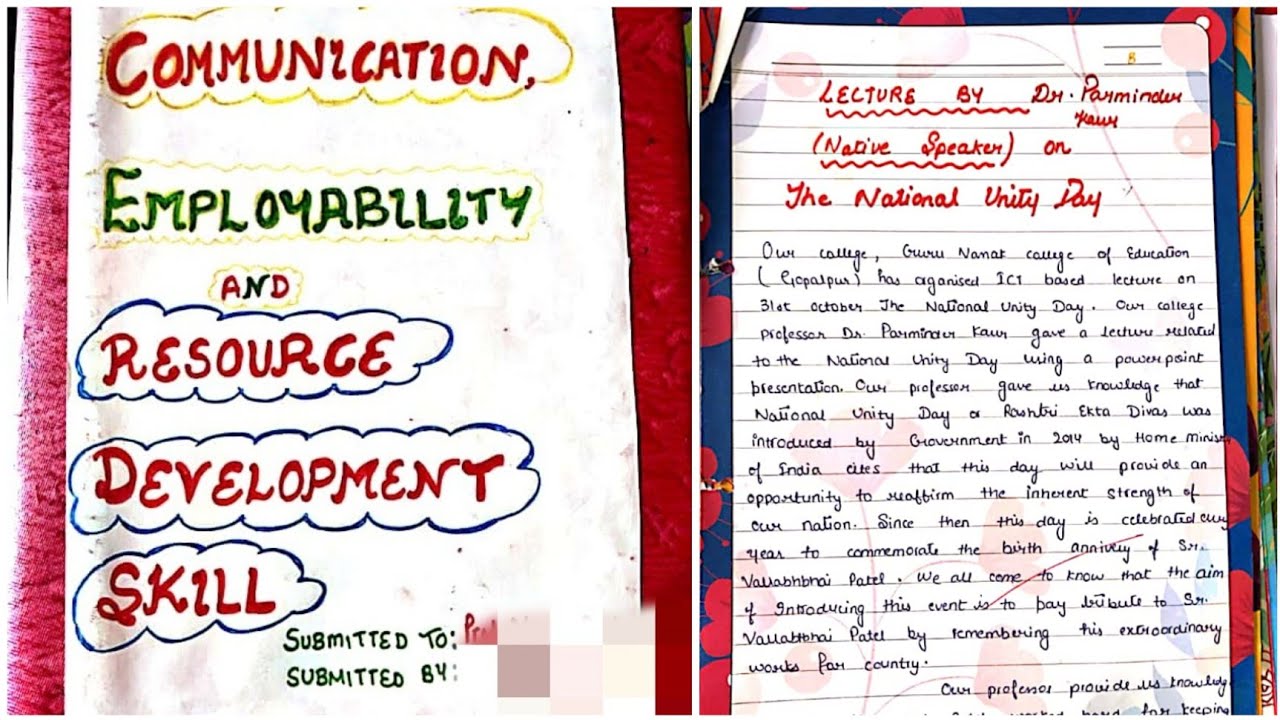 COMMUNICATION,
EMPLOYABILITY
AND
RESOURCE
DEVELOPMENT
SKILL
SUBMITTED TO:
SUBMITTED BY:
8
LECTURE BY Dr. Parminder
Kaur
(Native Speaker) on
The National Unity Day
Our college, Guru Nanak college of Education
(Gopalpur) has organised ICT based lecture on
31st October The National Unity Day. Our college
professor Dr. Parminder Kaur gave a lecture related
to the National Unity Day using a powerpoint
presentation. Our professor gave us knowledge that
National Unity Day or Rashtri Ekta Divas was
introduced by Government in 2014 by Home
of India cites that this day will provide an
opportunity to reaffirm the inherent strength of
our nation. Since then this day is celebrated
year to commemorate the birth of Sr.
Vallabhbhai Patel. We all come to know that the aim
of Introducing this event is to pay tribute to Sr.
Vallabhbhai Patel by remembering his extraordinary
works for country.
Our professor provide us
worked hard for keeping